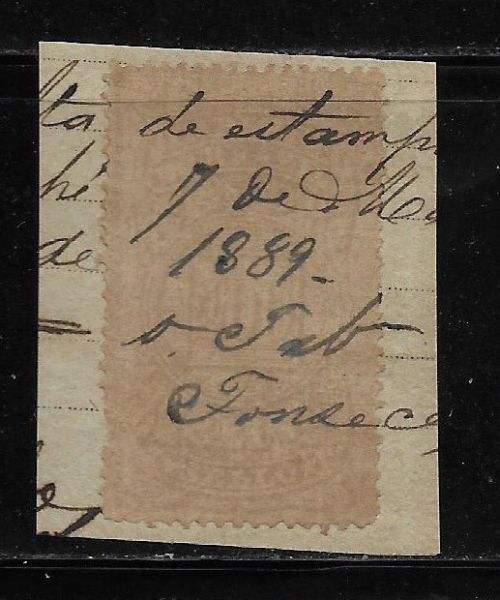 lta de estamp
hé 7 de Ma
de 1889_
o. Tab
Fonseca